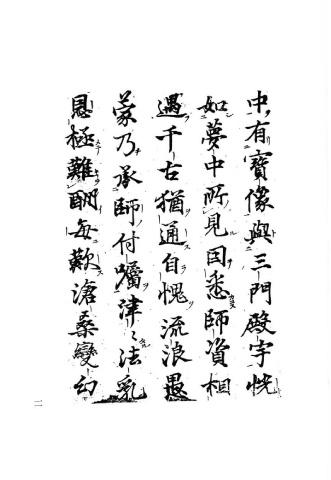 中有寶像與三門殿宇恍
如夢中所見因悉師資相
遇千古猶通自愧流浪愚
蒙乃承師付囑津々法乳
恩極難酬每歎滄桑變幻
二